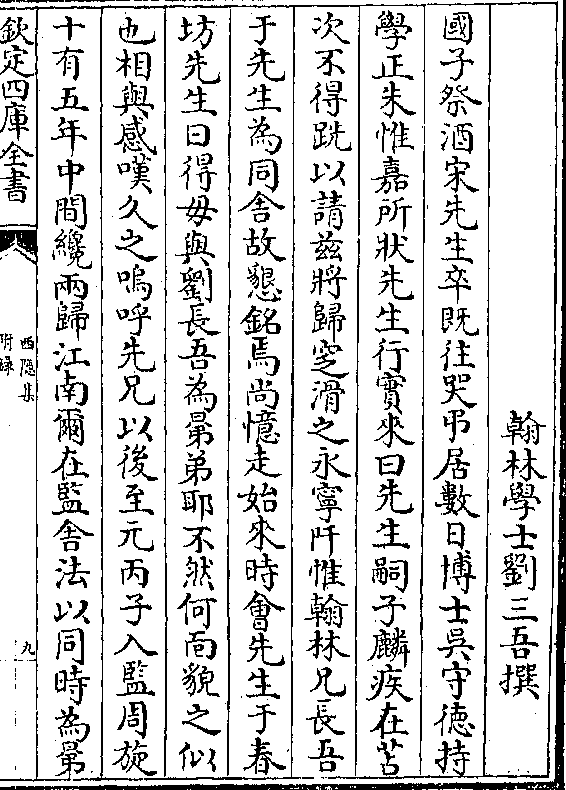 翰林學士劉三吾撰
國子祭酒宋先生卒既往哭弔居數日博士吳守德持
學正朱惟嘉所狀先生行實來曰先生嗣子麟疾在苫
次不得跣以請兹將歸窆滑之永寧阡惟翰林兄長吾
于先生為同舍故懇銘焉尚憶走始來時會先生于春
坊先生曰得毋與劉長吾為昆弟耶不然何靣貌之似
也相與感嘆久之嗚呼先兄以後至元丙子入監周旋
十有五年中間纔兩歸江南爾在監舍法以同時為第
欽定四庫全書
西隱集
附録
九